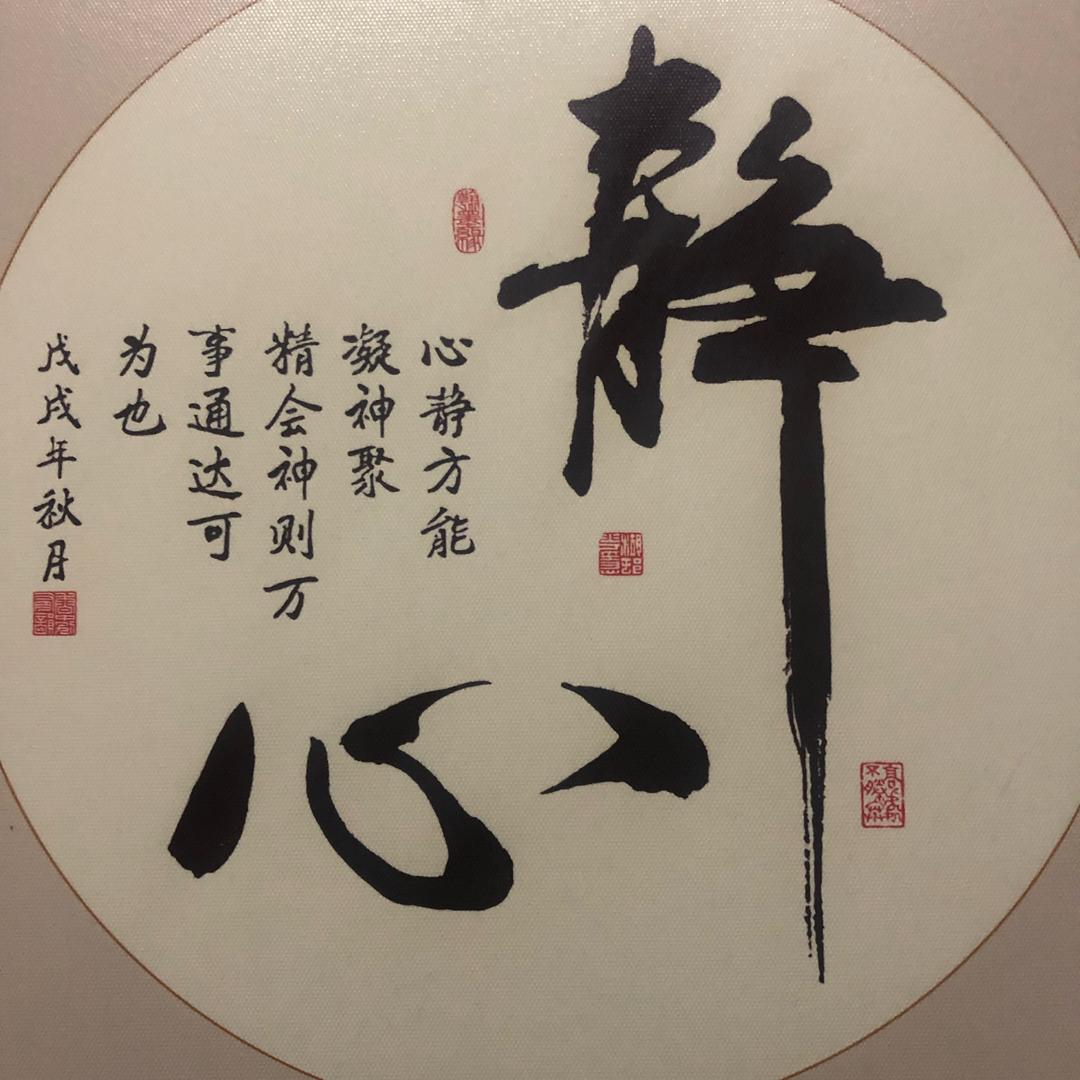 靜心
心静方能
凝神聚
精会神则万
事通达可
为也
戊戌年秋月